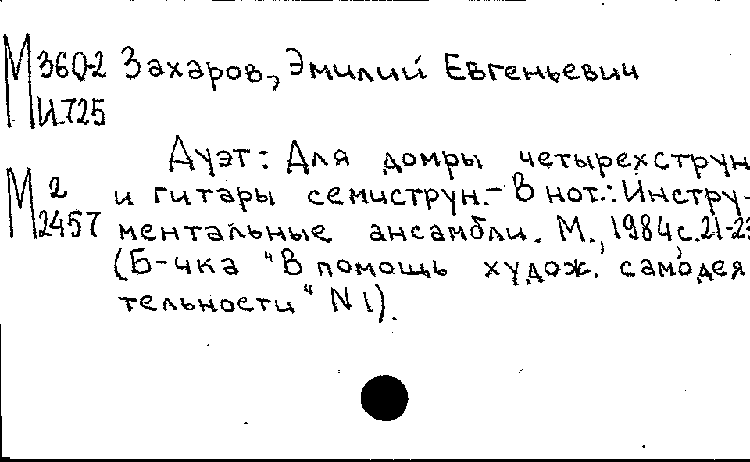 М 360-2 Захаров, Эмилий Евгеньевич
И-725
Дуэт: Для домры четырехструн
М 2 и гитары семиструн.- В нот.: Инстру-
2457 ментальные ансамбли. М., 1984, с. 21-23
(Б-чка "В помощь худож. самодея
тельности" N 1).